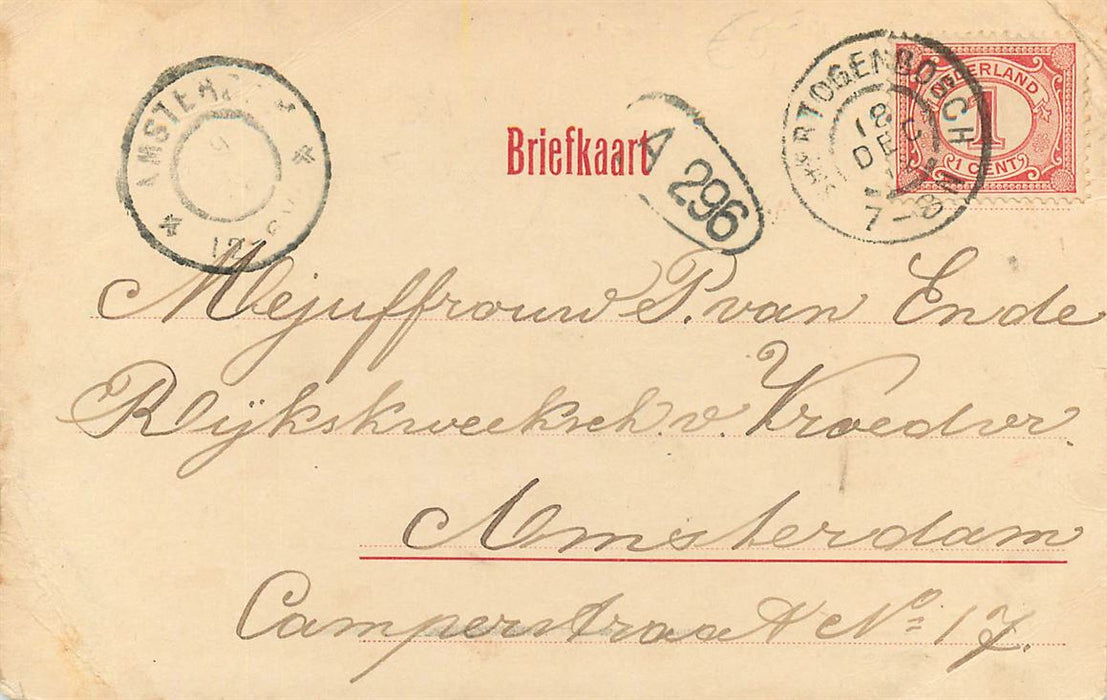 AMSTERDAM
Briefkaart
A 296
'S HERTOGENBOSCH
18 DEC
7-8N
NEDERLAND
1
1 CENT
Mejuffrouw P. van Ende
Rijkskweeksch. v. Vroedvr.
Amsterdam
Camperstraat No. 17.